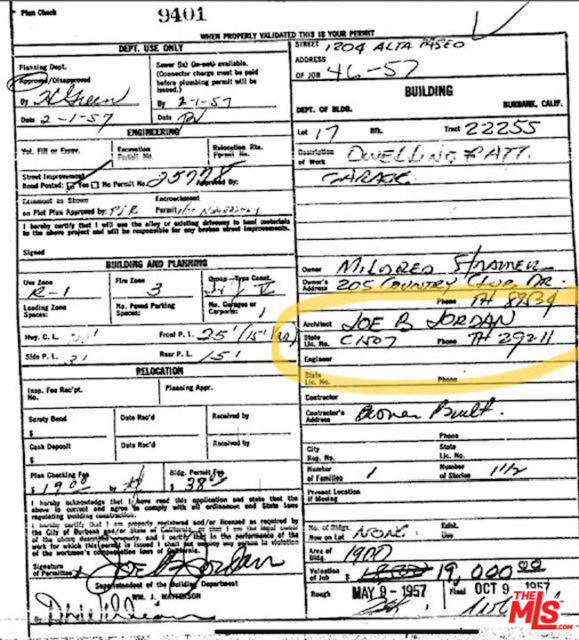 Plan Check
9401
WHEN PROPERLY VALIDATED THIS IS YOUR PERMIT
DEPT. USE ONLY
Planning Dept.
Approved/Disapproved
By H Green
Date 2-1-57
Sewer Sta) Un-not) available.
(Connector charge must be paid
before plumbing permit will be
issued.)
By 2-1-57
Date
ENGINEERING
Vol. Fill or Excav.
Excavation
Permit No.
Relocation Rte.
Permit No.
Street Improvement
Bond Posted: Yes No Permit No. Approved By:
Easement as Shown
on Plot Plan Approved by:
Encroachment
Permit
I hereby certify that I will use the alley or existing driveway to haul materials
to the above project and will be responsible for any broken street improvements.
Signed
BUILDING AND PLANNING
Use Zone
R-1
Fire Zone
3
Group - Type Const.
V
Loading Zone
Spaces:
No. Paved Parking
Spaces:
No. Garages or
Carports: 1
Hwy. C. L.
Front P. L. 25' (15'
Side P. L. 3'
Rear P. L. 15'
RELOCATION
Insp. Fee Rec'pt.
No.
Planning Appr.
Surety Bond
$
Date Rec'd
Received by
Cash Deposit
$
Date Rec'd
Received by
Plan Checking Fee
$ 19.00 by
Bldg. Permit Fee
$ 38.00
I hereby acknowledge that I have read this application and state that the
above is correct and agree to comply with all ordinances and State laws
regulating building construction.
I hereby certify that I am properly registered and/or licensed as required by
the City of Burbank and/or State of California, or that I am the legal owner
of the above described property, and I certify that in the performance of the
work for which this permit is issued I shall not employ any person in violation
of the workmen's compensation laws of California.
Signature
of Permittee Joe B Jordan
Superintendent of the Building Department
WM. J. MATTERSON
STREET 1204 ALTA PASEO
ADDRESS
OF JOB 46-57
BUILDING
DEPT. OF BLDG. BURBANK, CALIF.
Lot 17 Blk. Tract 22255
Description
of Work DWELLING & ATT.
GARAGE
Owner MILDRED
Owner's
Address 205 COUNTRY CLUB DR.
Phone
Architect JOE B JORDAN
State
Lic. No. C1507 Phone TH 29211
Engineer
State
Lic. No. Phone
Contractor
Contractor's
Address Owner Built
Phone
City
Reg. No.
State
Lic. No.
Number
of Families 1
Number
of Stories 1 1/2
Present Location
if Moving
No. of Bldgs.
Now on Lot NONE
Exist.
Use
Area of
Bldg. 1900
Valuation
of Job 19,000.00
Rough MAY 9 - 1957
Final OCT 9 1957
THE
MLS.com